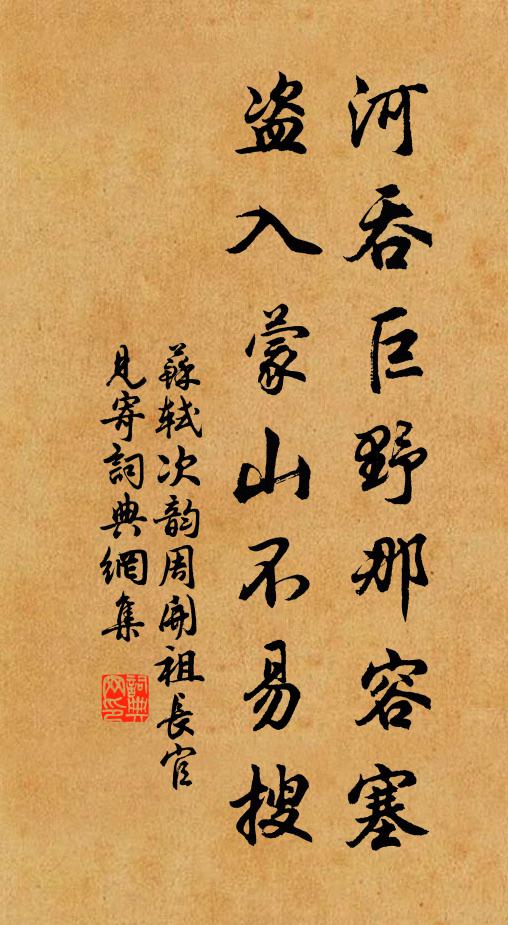 河吞巨野那容塞
盗入蒙山不易搜
蘇軾次韵周開祖長官
見寄詞典網集
詞典網印